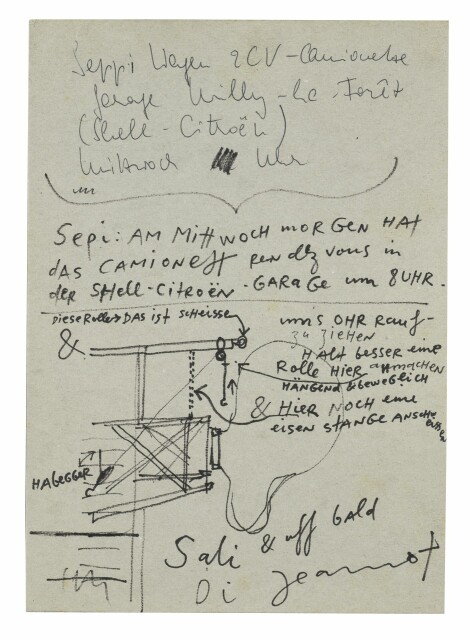 Seppi Wagen 2CV-Camionette
Garage Willy-la-Forêt
(Shell-Citroën)
Mittwoch Uhr
Sepi: AM MittWOCH MORGEN HAt
das CAMIONEtt RENdEZ VOUS in
der SHell-CitROËN-GARAGE um 8UHR.
DIESE Rolle > DAS ist SCHEISSE
&
um's OHR RAUF-
zu ZIEHEN
HALt besser eine
ROLLE HIER ANMACHEN
HÄNGEND & BEWEGLICH
& HIER NOCH EINE
EISEN STANGE
HABEGGER
Sali & uff bald
Di Jeannot